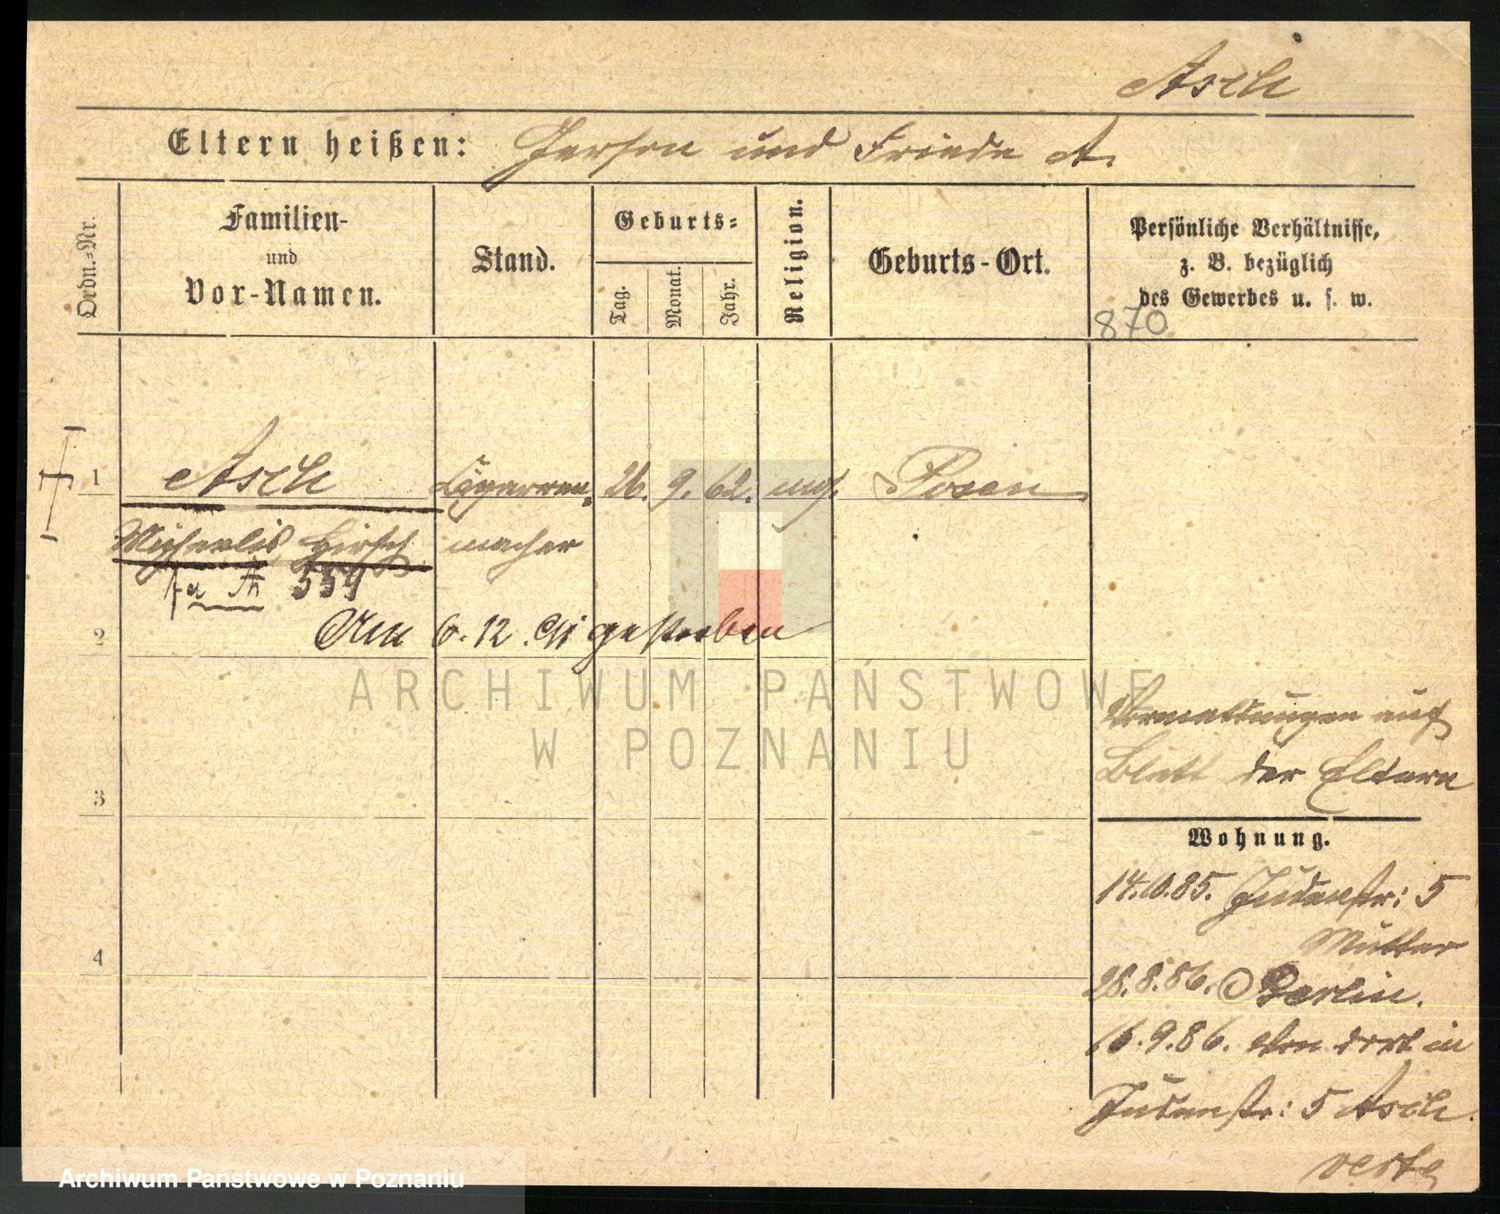 Asch
Eltern heißen: Gerson und Friede A.
Ordn.-Nr.
Familien-
und
Vor-Namen.
Stand.
Geburts-
Tag.
Monat.
Jahr.
Religion.
Geburts-Ort.
Persönliche Verhältnisse,
z. B. bezüglich
des Gewerbes u. s. w.
870
1 Asch Cigarren- 26. 9. 62. mos. Posen
Michaelis Hirsch macher
559
2 Am 6.12.91 gestorben
ARCHIWUM PAŃSTWOWE
W POZNANIU
Vermeldungen auf
Blatt der Eltern
3
Wohnung.
14.10.85. Judenstr: 5
Mutter
4
28.8.86. Berlin.
16.9.86. von dort in
Judenstr: 5 Asch.
verte
Archiwum Państwowe w Poznaniu